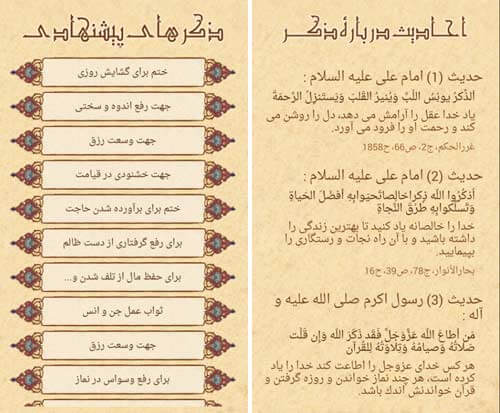 احادیث دربارهٔ ذکر
حدیث (1) امام علی علیه السلام :
الذِّکرُ یونِسُ اللُّبَّ وَیُنیرُ القَلبَ وَیَستَنزِلُ الرَّحمَةَ
یاد خدا عقل را آرامش می دهد، دل را روشن می
کند و رحمت او را فرود می آورد.
غررالحکم، ج2، ص66، ح1858
حدیث (2) امام علی علیه السلام :
اُذکُرُوا اللّه ذِکرا خالِصا تَحیَوا بِهِ اَفضَلَ الحَیاةِ
وَتَسلُکوا بِهِ طُرُقَ النَّجاةِ
خدا را خالصانه یاد کنید تا بهترین زندگی را
داشته باشید و با آن راه نجات و رستگاری را
بپیمایید.
بحارالأنوار، ج78، ص39، ح16
حدیث (3) رسول اکرم صلی الله علیه و
آله :
مَن اَطاعَ اللّه عَزَّوَجَلَّ فَقَد ذَکَرَ اللّه وَإن قَلَّت
صَلاتُهُ وَصیامُهُ وَتِلاوَتُهُ لِلقُرآنِ
هر کس خدای عزوجل را اطاعت کند خدا را یاد
کرده است، هر چند نماز خواندن و روزه گرفتن و
قرآن خواندنش اندک باشد.
ذکرهای پیشنهادی
ختم برای گشایش روزی
جهت رفع اندوه و سختی
جهت وسعت رزق
جهت خشنودی در قیامت
ختم برای برآورده شدن حاجت
برای رفع گرفتاری از دست ظالم
برای حفظ مال از تلف شدن و...
ثواب عمل جن و انس
جهت وسعت رزق
برای رفع وسواس در نماز